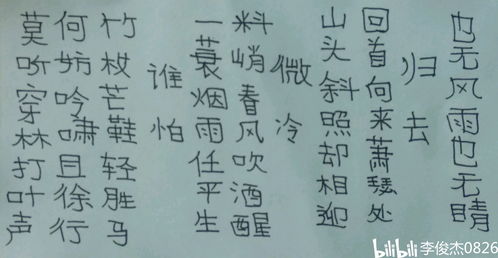 莫听穿林打叶声
何妨吟啸且徐行
竹杖芒鞋轻胜马
谁怕
一蓑烟雨任平生
料峭春风吹酒醒
微冷
山头斜照却相迎
回首向来萧瑟处
归去
也无风雨也无晴
bilibili 李俊杰0826